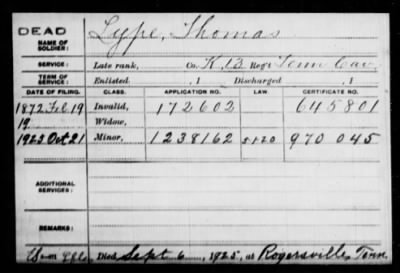 DEAD
NAME OF SOLDIER: Lype, Thomas
SERVICE: Late rank, Co. K, 13 Reg't Tenn Cav.
TERM OF SERVICE: Enlisted , 1 Discharged , 1
DATE OF FILING. CLASS. APPLICATION NO. LAW. CERTIFICATE NO.
1872 Feb 19 Invalid, 172602 645801
Widow,
1923 Oct 21 Minor, 1238162 970045
ADDITIONAL SERVICES:
REMARKS:
Died Sept 6, 1925, at Rogersville, Tenn.